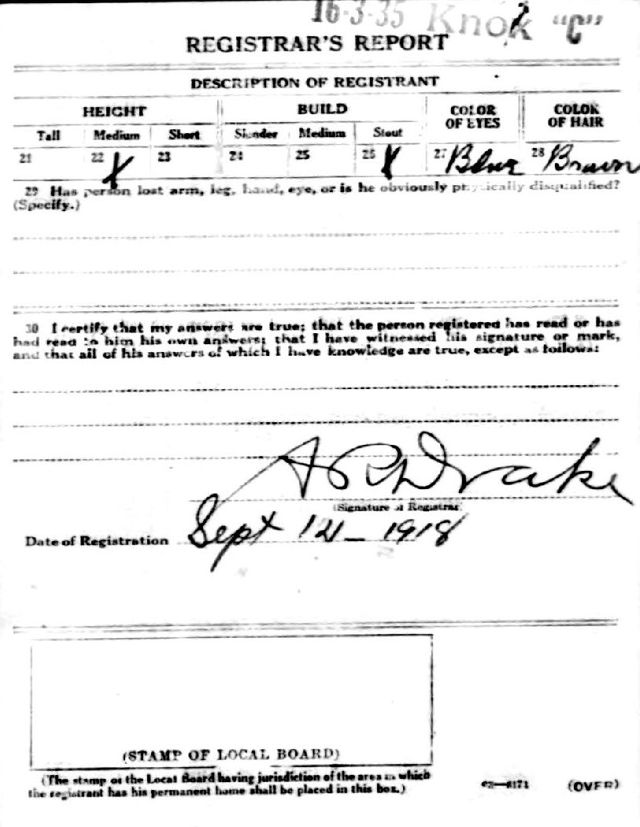 16-3-35 Knox "C"
REGISTRAR'S REPORT
DESCRIPTION OF REGISTRANT
HEIGHT BUILD COLOR OF EYES COLOR OF HAIR
Tall Medium Short Slender Medium Stout
21 22 X 23 24 25 26 X 27 Blue 28 Brown
29 Has person lost arm, leg, hand, eye, or is he obviously physically disqualified?
(Specify.)
30 I certify that my answers are true; that the person registered has read or has
had read to him his own answers; that I have witnessed his signature or mark,
and that all of his answers of which I have knowledge are true, except as follows:
Drake
(Signature of Registrar)
Date of Registration Sept 12 - 1918
(STAMP OF LOCAL BOARD)
(The stamp of the Local Board having jurisdiction of the area in which
the registrant has his permanent home shall be placed in this box.)
(OVER)